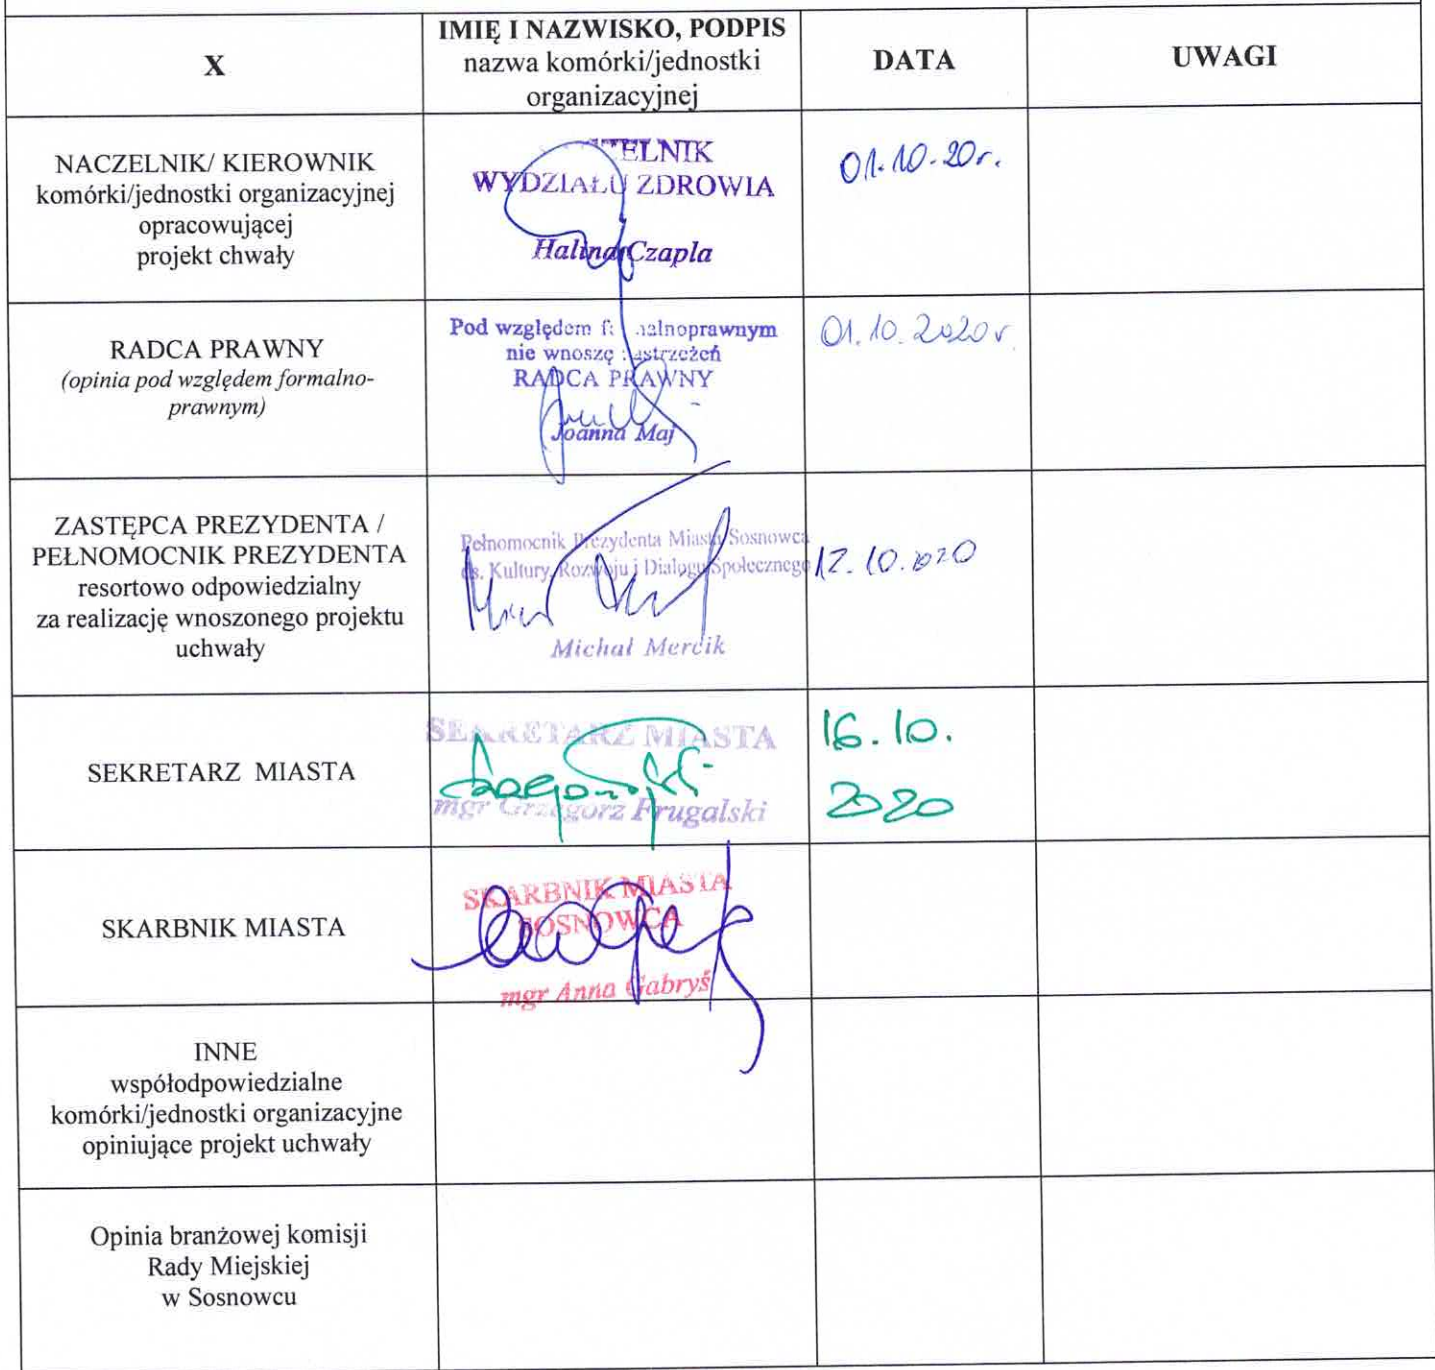 X
IMIĘ I NAZWISKO, PODPIS
nazwa komórki/jednostki
organizacyjnej
DATA
UWAGI
NACZELNIK/ KIEROWNIK
komórki/jednostki organizacyjnej
opracowującej
projekt chwały
WYDZIAŁU ZDROWIA
Halina Czapla
01.10.20r.
RADCA PRAWNY
(opinia pod względem formalno-
prawnym)
Pod względem
nie wnoszę zastrzeżeń
RADCA PRAWNY
Joanna Maj
01.10.2020r.
ZASTĘPCA PREZYDENTA /
PEŁNOMOCNIK PREZYDENTA
resortowo odpowiedzialny
za realizację wnoszonego projektu
uchwały
Pełnomocnik Prezydenta Miasta Sosnowca
ds. Kultury, Rozwoju i Dialogu Społecznego
Michał Mercik
12.10.2020
SEKRETARZ MIASTA
SEKRETARZ MIASTA
mgr Grzegorz Frugalski
16.10.
2020
SKARBNIK MIASTA
SKARBNIK MIASTA
SOSNOWCA
mgr Anna Gabryś
INNE
współodpowiedzialne
komórki/jednostki organizacyjne
opiniujące projekt uchwały
Opinia branżowej komisji
Rady Miejskiej
w Sosnowcu